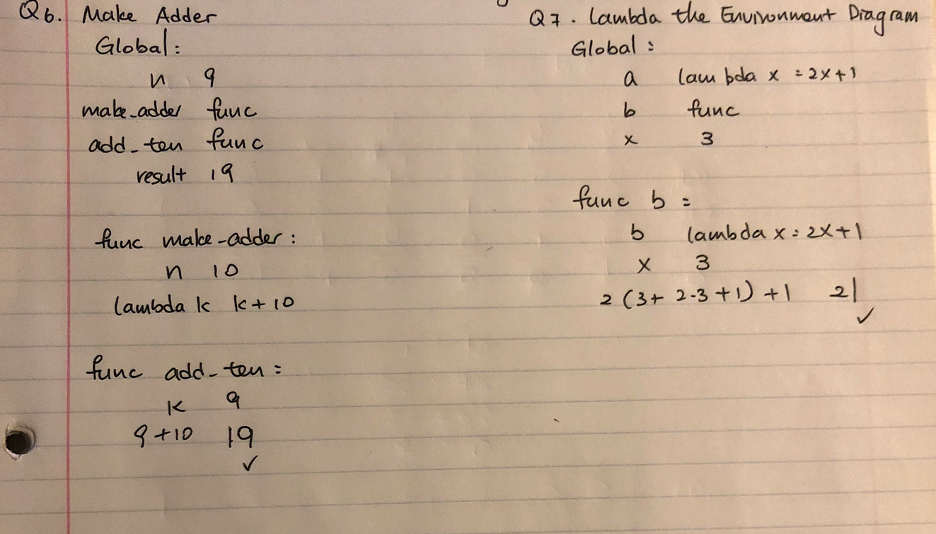 Q6. Make Adder
Global:
n 9
make_adder func
add_ten func
result 19
func make-adder:
n 10
lambda k k+10
func add_ten:
k 9
9+10 19
✓
Q7. Lambda the Environment Diagram
Global:
a lambda x = 2x+1
b func
x 3
func b =
b lambda x = 2x+1
x 3
2(3+ 2·3+1) +1 21
✓